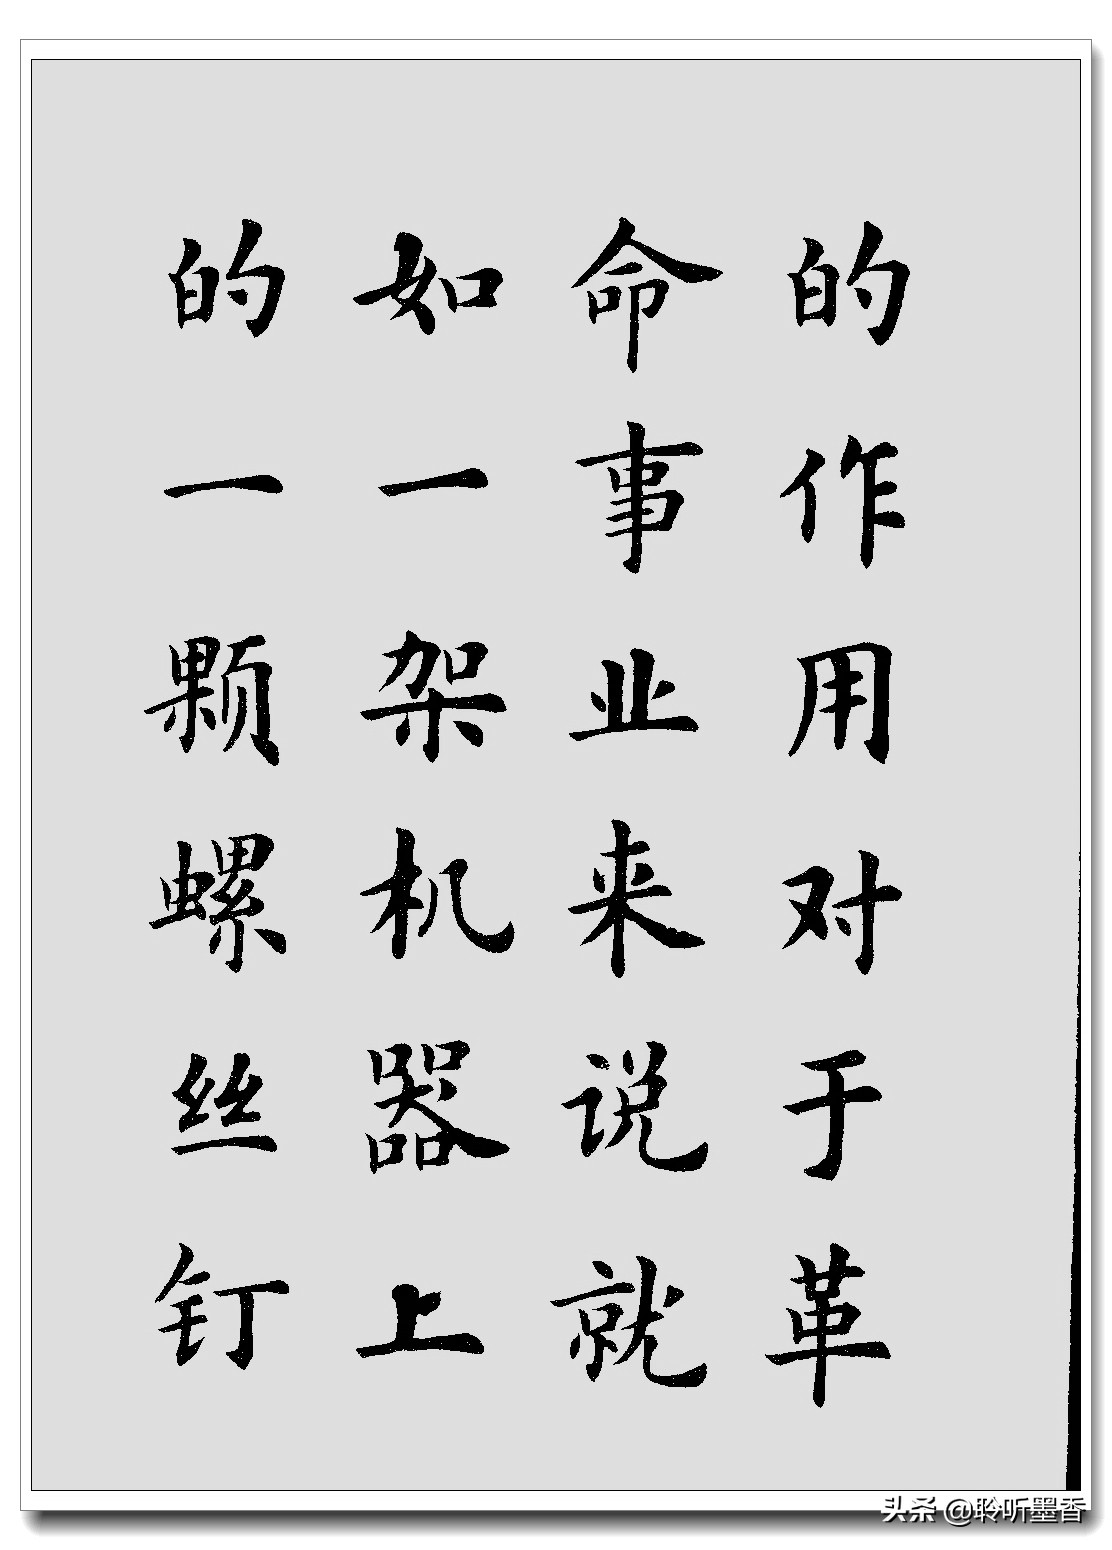 的作用对于革
命事业来说就
如一架机器上
的一颗螺丝钉
头条 @聆听墨香